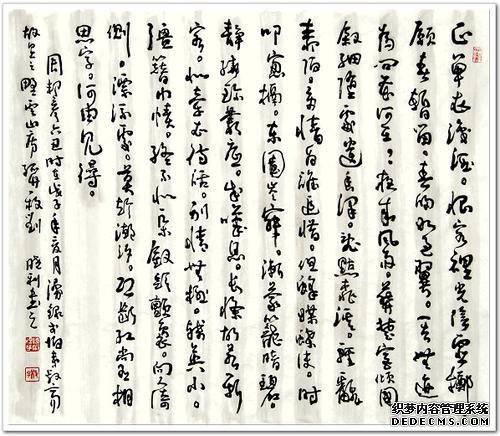 正單衣試酒。悵客裡光陰虛擲
願春暫留。春歸如過翼。一去無跡
為問花何在。夜來風雨。葬楚宮傾國
釵鈿墮處遺香澤。亂點桃溪。輕翻
柳陌。多情為誰追惜。但蜂媒蝶使。時
叩窗槅。東園岑寂。漸蒙籠暗碧。
靜繞珍叢底。成嘆息。長條故惹行
客。似牽衣待話。別情無極。殘英小。
強簪巾幘。終不似一朵。釵頭顫裊。向人欹
側。漂流處。莫趁潮汐。恐斷紅尚有相
思字。何由見得。
周邦彥六丑 時在戊子年
故里之野雲山房 曉利書之
织梦内容管理系统
DEDECMS.COM